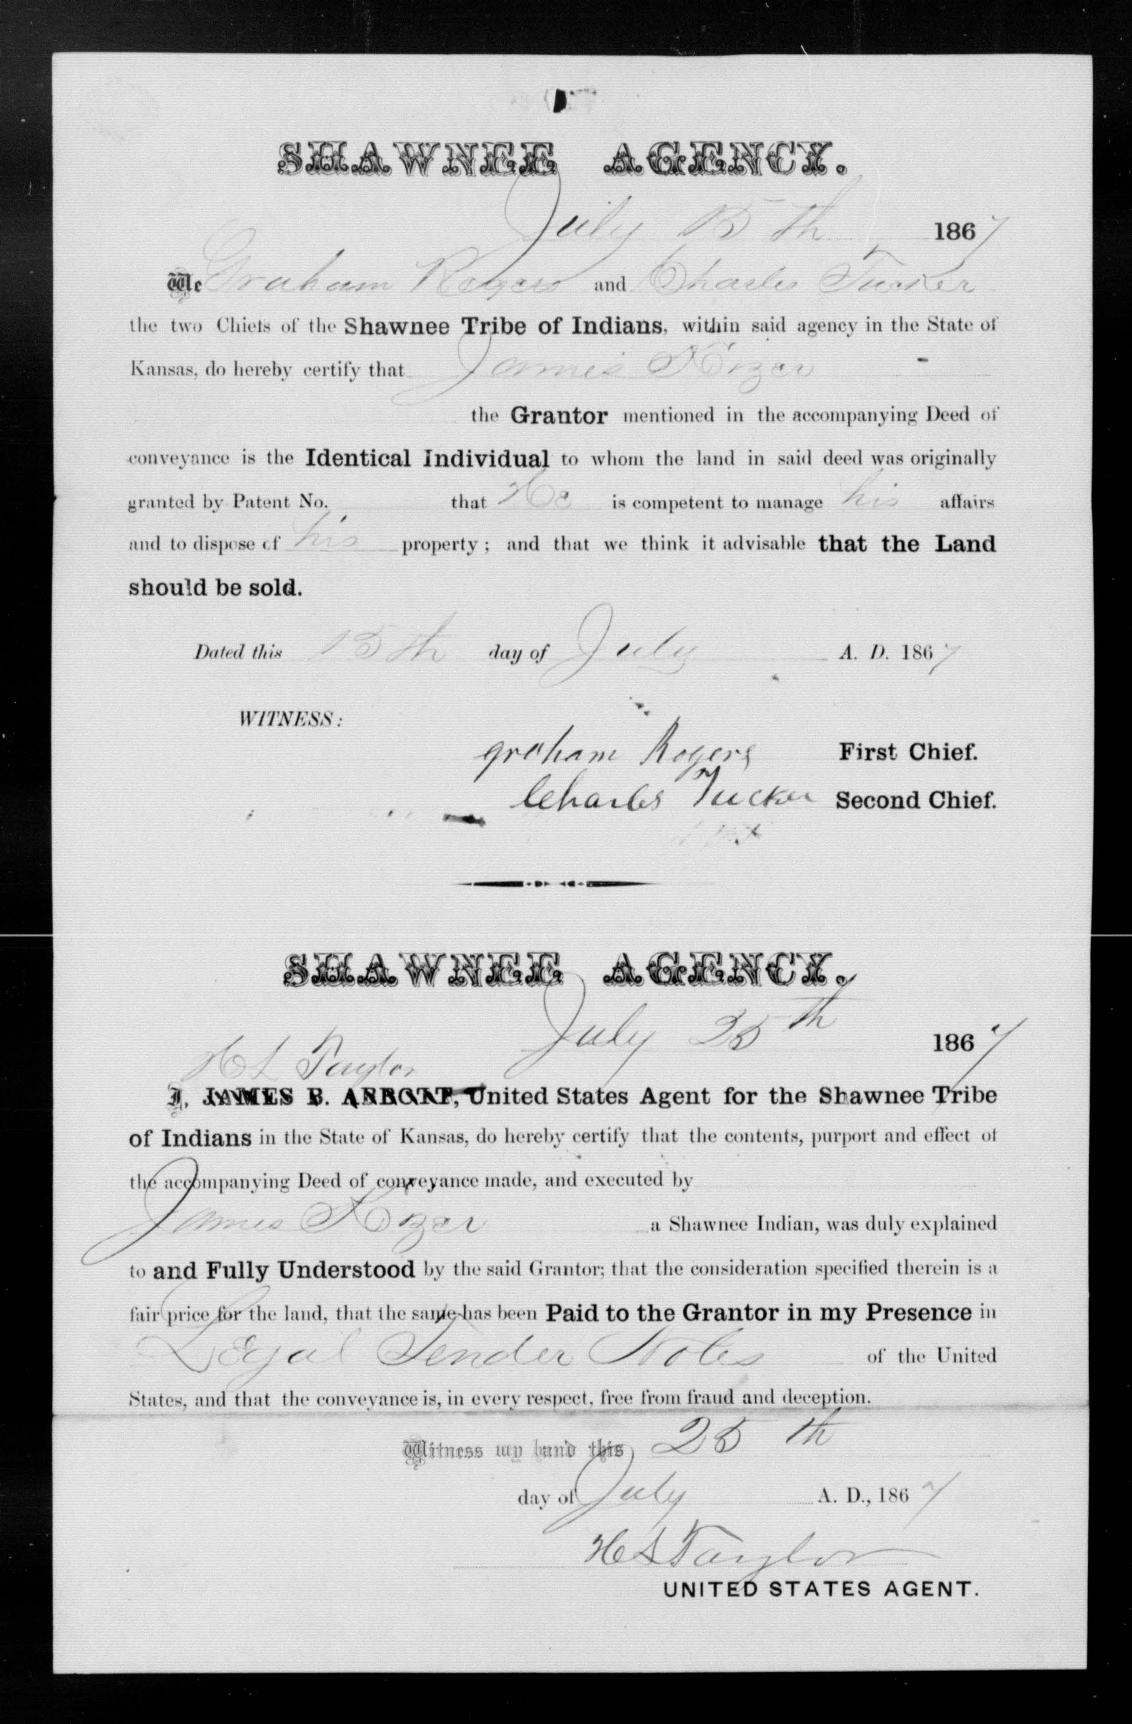 SHAWNEE AGENCY.
July 15th 1867
We Graham Rogers and Charles Tucker
the two Chiefs of the Shawnee Tribe of Indians, within said agency in the State of
Kansas, do hereby certify that James Kizer
the Grantor mentioned in the accompanying Deed of
conveyance is the Identical Individual to whom the land in said deed was originally
granted by Patent No. that He is competent to manage his affairs
and to dispose of his property; and that we think it advisable that the Land
should be sold.
Dated this 15th day of July A. D. 1867
WITNESS:
graham Rogers First Chief.
Charles Tucker Second Chief.
SHAWNEE AGENCY.
July 25th 1867
H L Taylor
I, JAMES B. ABBOTT, United States Agent for the Shawnee Tribe
of Indians in the State of Kansas, do hereby certify that the contents, purport and effect of
the accompanying Deed of conveyance made, and executed by
James Kizer a Shawnee Indian, was duly explained
to and Fully Understood by the said Grantor; that the consideration specified therein is a
fair price for the land, that the same has been Paid to the Grantor in my Presence in
Legal Tender Notes of the United
States, and that the conveyance is, in every respect, free from fraud and deception.
Witness my hand this 25th
day of July A. D., 1867
H L Taylor
UNITED STATES AGENT.